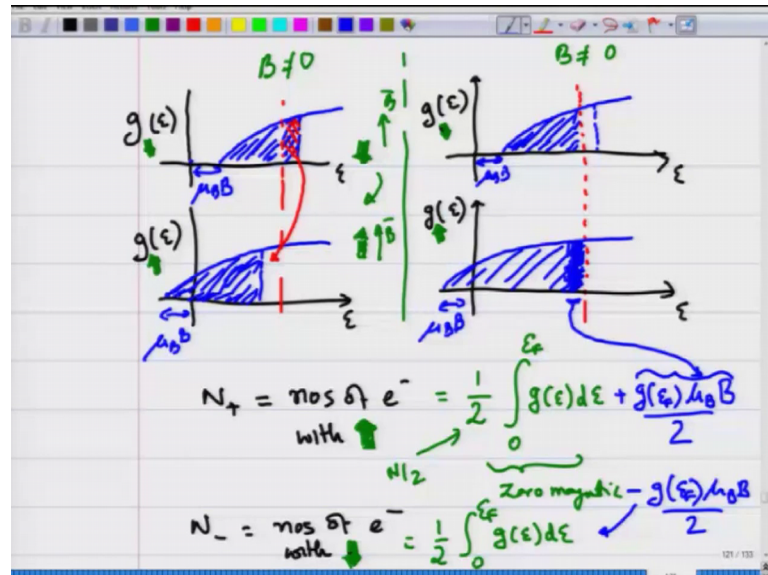 B≠0
B≠0
g(ε)
μ_B B
ε
B̄
g(ε)
μ_B B
ε
g(ε)
μ_B B
ε
B̄
g(ε)
μ_B B
ε
N₊ = nos of e⁻ with ↑ = 1/2 ∫₀^{ε_F} g(ε)dε + g(ε_F) μ_B B / 2
N/2
Zero magnetic
N₋ = nos of e⁻ with ↓ = 1/2 ∫₀^{ε_F} g(ε)dε − g(ε_F) μ_B B / 2
121 / 133